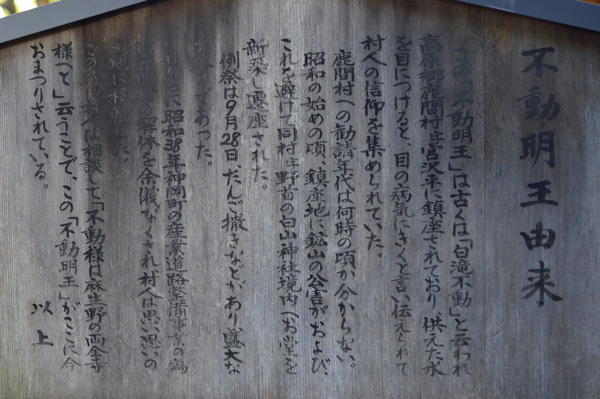 不動明王由来
この「不動明王」は古くは「白滝不動」と云われ
高原郷鹿間村字宮沢平に鎮座されており、供えた水
を目につけると、目の病気にきくと言い伝えられて
村人の信仰を集められていた。
鹿間村への勧請年代は何時の頃か分からない。
昭和の始めの頃、鎮座地に鉱山の公害がおよび、
これを避けて同村字野首の白山神社境内へお堂を
新築、遷座された。
例祭は9月28日、だんご撒きなどがあり、盛大な
であった。
昭和38年神岡町の産業道路整備事業の為
解体を余儀なくされ村人は思い思いの
地に
この 相談して「不動様は麻生野の両全寺
様へと」云うことで、この「不動明王」がここに今
おまつりされている。
以上